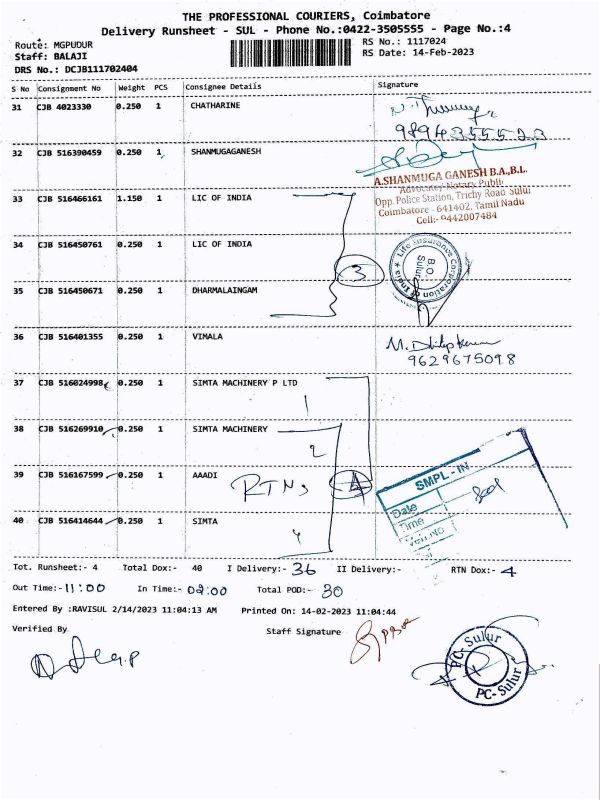 THE PROFESSIONAL COURIERS, Coimbatore
Delivery Runsheet - SUL - Phone No.:0422-3505555 - Page No.:4
Route: MGPUDUR
RS No.: 1117024
Staff: BALAJI
RS Date: 14-Feb-2023
DRS No.: DCJB111702404
S No Consignment No Weight PCS Consignee Details Signature
31 CJB 4023330 0.250 1 CHATHARINE
9894355523
32 CJB 516390459 0.250 1 SHANMUGAGANESH
A.SHANMUGA GANESH B.A.,B.L.
Advocate/Notary Public
Opp. Police Station, Trichy Road Sulur
Coimbatore - 641402, Tamil Nadu
Cell:- 9442007484
33 CJB 516466161 1.150 1 LIC OF INDIA
34 CJB 516450761 0.250 1 LIC OF INDIA
3
Life Insurance Corporation of India
B.O.
Sulur
35 CJB 516450671 0.250 1 DHARMALAINGAM
36 CJB 516401355 0.250 1 VIMALA
9629675098
37 CJB 516024998 0.250 1 SIMTA MACHINERY P LTD
1
38 CJB 516269910 0.250 1 SIMTA MACHINERY
2
39 CJB 516167599 0.250 1 AAADI
RTNs 4
SMPL - IN
Date
Time
40 CJB 516414644 0.250 1 SIMTA
4
Tot. Runsheet:- 4 Total Dox:- 40 I Delivery:- 36 II Delivery:- RTN Dox:- 4
Out Time:- 11:00 In Time:- 02:00 Total POD:- 30
Entered By :RAVISUL 2/14/2023 11:04:13 AM Printed On: 14-02-2023 11:04:44
Verified By Staff Signature
PC- Sulur
PC- Sulur